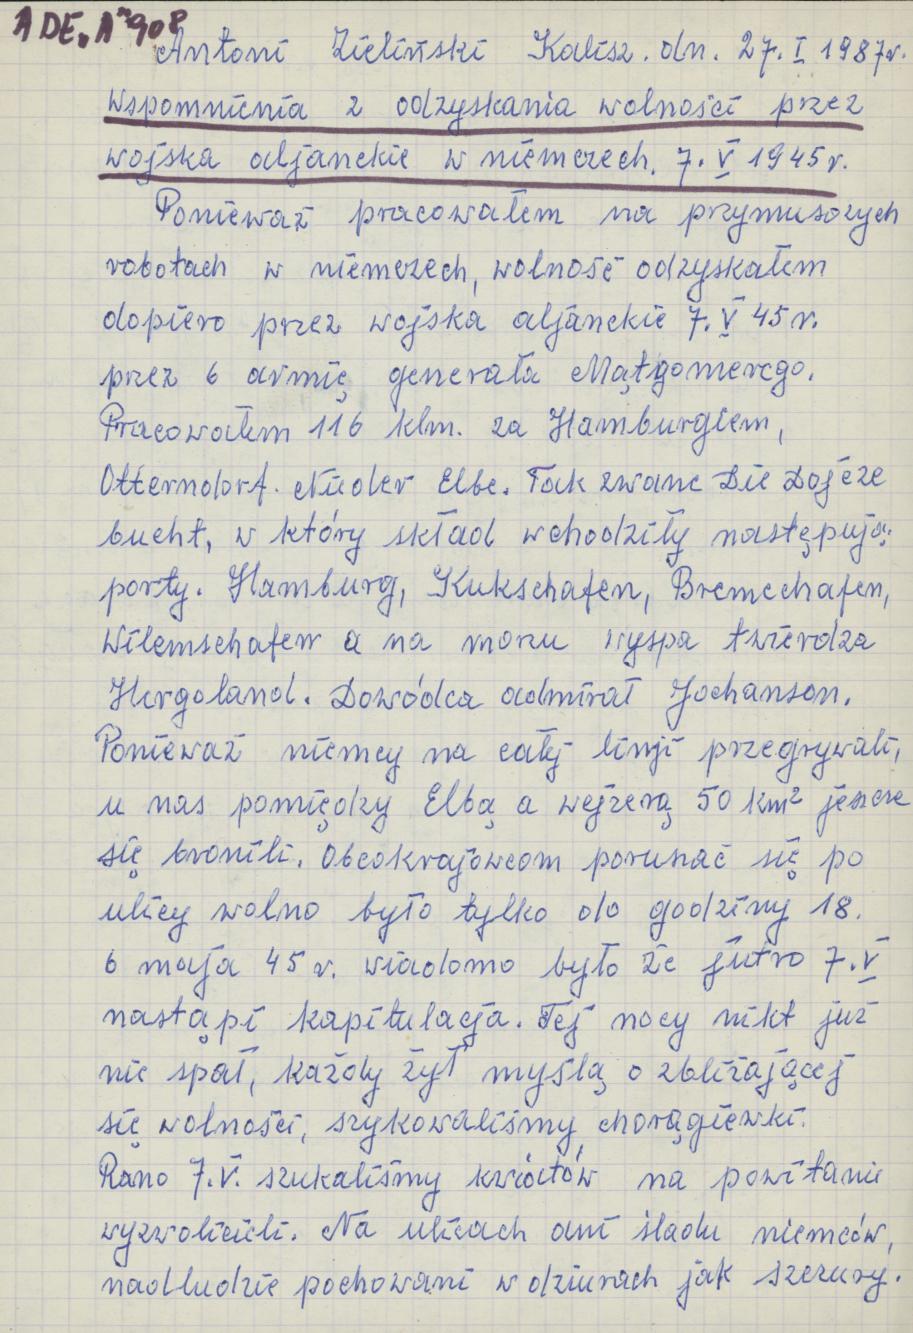 ADE. A. 908
Antoni Zieliński Kalisz. dn. 27. I 1987r.
Wspomnienia z odzyskania wolności przez
wojska aljanckie w niemczech. 7. V 1945r.
Ponieważ pracowałem na przymusozych
robotach w niemczech, wolność odzyskałem
dopiero przez wojska aljanckie 7. V 45r.
przez 6 armię generała Mątgomerego.
Pracowałem 116 klm. za Hamburgiem,
Otterndorf. Nieder Elbe. Tak zwane Die Dojcze
bucht, w który skład wchodziły następują:
porty. Hamburg, Kukschafen, Bremechafen,
Wilemschafen a na morzu wyspa twierdza
Hergoland. Dowódca admirał Jochanson.
Ponieważ niemcy na całej linji przegrywali,
u nas pomiędzy Elbą a wejzerą 50 km² jeszcze
się bronili. Obcokrajowcom poruszać się po
ulicy wolno było tylko do godziny 18.
6 maja 45 r. wiadomo było że jutro 7. V
nastąpi kapitulacja. Tej nocy nikt już
nie spał, każdy żył myślą o zbliżającej
się wolności, szykowaliśmy chorągiewki.
Rano 7. V. szukaliśmy kwiatów na powitanie
wyzwolicieli. Na ulicach ani śladu niemców,
nadludzie pochowani w dziurach jak szczury.